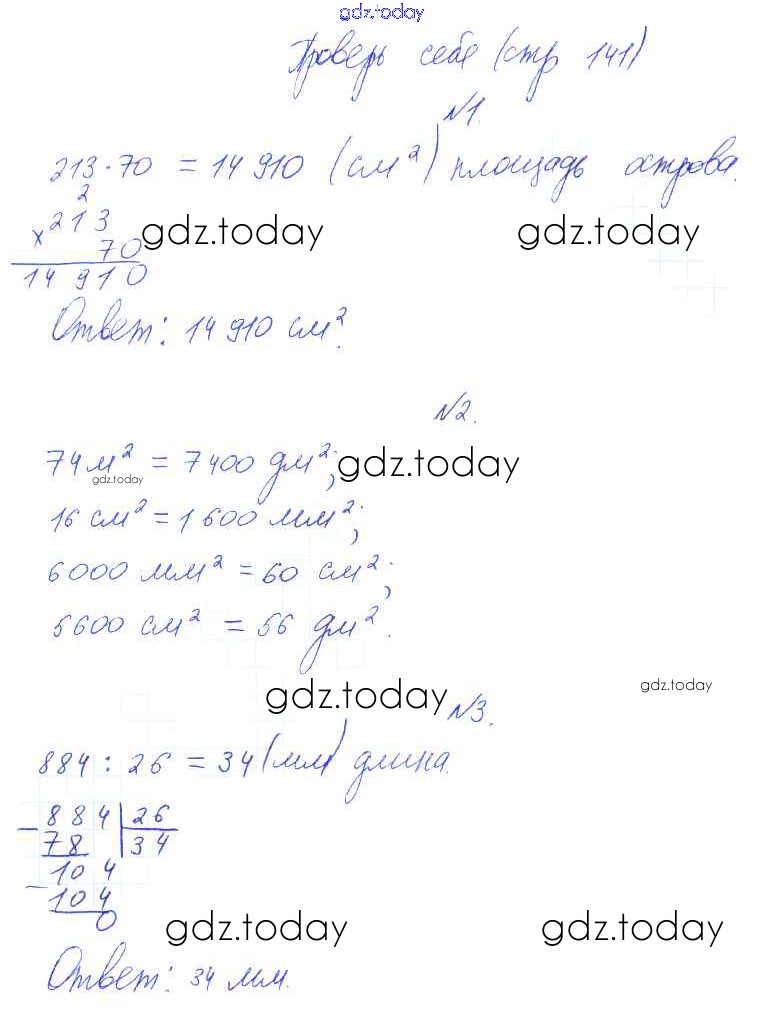 gdz.today
Проверь себе (стр 141)
№1.
213·70 = 14 910 (см²) площадь острова.
2
× 213 gdz.today gdz.today
70
14 910
Ответ: 14 910 см².
№2.
74 м² = 7400 дм²; gdz.today
gdz.today
16 см² = 1 600 мм²;
6000 мм² = 60 см²;
5600 см² = 56 дм².
gdz.today gdz.today
№3.
884 : 26 = 34 (мм) длина.
- 884 | 26
78 | 34
104
- 104
0
gdz.today gdz.today
Ответ: 34 мм.